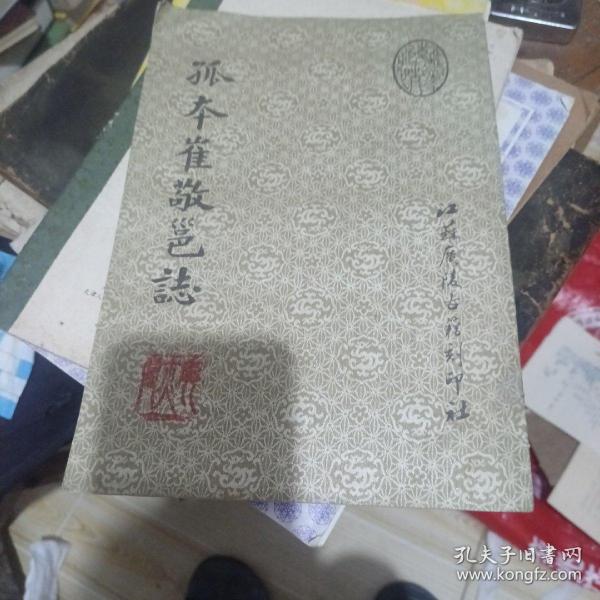 孤本崔敬邕誌
江蘇广陵古籍刻印社
孔夫子旧书网
www.kongfz.com